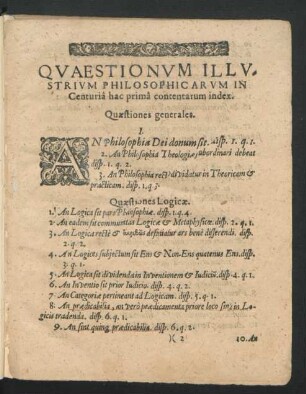 QVAESTIONVM ILLV-
STRIVM PHILOSOPHICARVM IN
Centuriâ hac primâ contentarum index.
Quæstiones generales.
I.
AN Philosophia Dei donum sit. disp. 1. q. 1.
2. An Philosophia Theologiæ subordinari debeat
disp. 1. q. 2.
3. An Philosophia rectè dividatur in Theoricam &
practicam. disp. 1. q. 3.
Quæstiones Logicæ.
1. An Logica sit pars Philosophiæ. disp. 1. q. 4.
2. An eadem sit communitas Logicæ & Metaphysicæ. disp. 2. q. 1.
3. An Logica rectè & definiatur ars benè disserendi. disp.
2. q. 2.
4. An Logicæ subjectum sit Ens & Non-Ens quatenus Ens. disp.
3. q.
5. An Logica sit dividenda in Inventionem & Iudiciũ. disp. 4. q. 1.
6. An Inventio sit prior Iudicio. disp. 4. q. 2.
7. An Categoriæ pertineant ad Logicam. disp. 5. q. 1.
8. An prædicabilia, an verò prædicamenta priore loco sint in Lo-
gicis tradenda. disp. 6. q. 1.
9. An sint quinq; prædicabilia. disp. 6. q. 2.
2 10. An